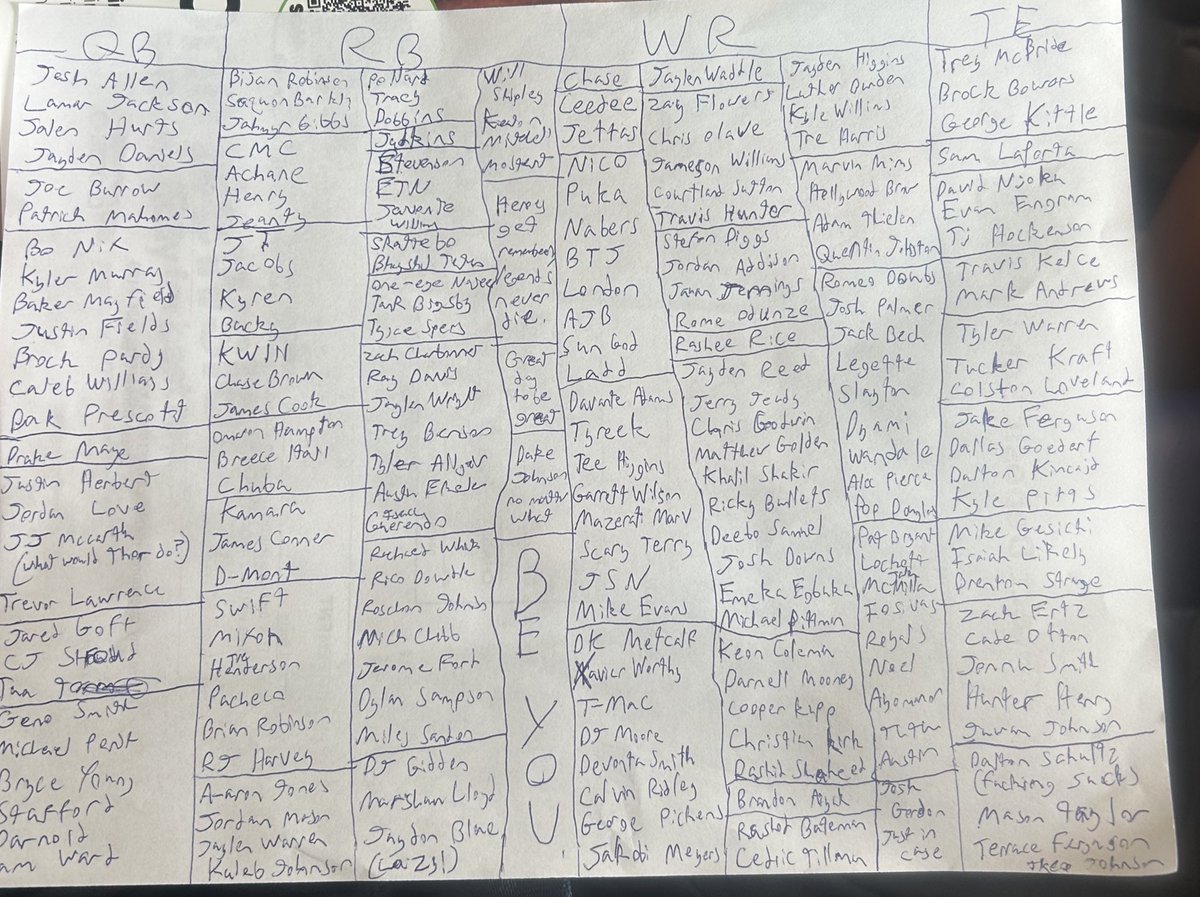 QB
Josh Allen
Lamar Jackson
Jalen Hurts
Jayden Daniels
Joe Burrow
Patrick Mahomes
Bo Nik
Kyler Murray
Baker Mayfield
Justin Fields
Broch Pardy
Caleb Williams
Dak Prescott
Drake Maye
Justin Herbert
Jordan Love
JJ McCarth
(what would Thor do?)
Trevor Lawrence
Jared Goff
CJ Stroud
Tua
Geno Smith
Michael Penix
Bryce Young
Stafford
Darnold
am Ward
RB
Bijan Robinson
Saquon Barkly
Jahmyr Gibbs
CMC
Achane
Henry
Jeanty
JT
Jacobs
Kyren
Bucky
KWIN
Chase Brown
James Cook
Omarion Hampton
Breece Hall
Chuba
Kamara
James Conner
D-Mont
Swift
Mixon
Tre
Henderson
Pacheco
Brian Robinson
RJ Harvey
A-aron Jones
Jordan Mason
Jaylen Warren
Kaleb Johnson
Pollard
Tracy
Dobbins
Judkins
Stevenson
ETN
Javonte
William
Skattebo
Bhayshul Tuten
one-eye Najee
Tank Bigsby
Tyjae Spers
Zach Charbonnet
Ray Davis
Jaylen Wright
Trey Benson
Tyler Allgeir
Austin Ekeler
Isaac
Guerendo
Rachaad White
Rico Dowdle
Roschon Johnson
Nich Chubb
Jerome Ford
Dylan Sampson
Miles Sanders
DJ Gidden
Marshawn Lloyd
Jaydon Blue
(Lazy!)
Will
Shipley
Keaton
Mitchell
Mostert
Heroes
get
remembered
legends
never
die.
Great
day
to be
great
Dake
Johnson
no matter
what
B
E
Y
O
U
WR
Chase
Ceedee
Jettas
Nico
Puka
Nabers
BTJ
London
AJB
Sun God
Ladd
Davante Adams
Tyreek
Tee Higgins
Garrett Wilson
Mazerati Marv
Scary Terry
JSN
Mike Evans
DK Metcalf
Xavier Worthy
T-Mac
DJ Moore
Devonta Smith
Calvin Ridley
George Pickens
Jakobi Meyers
Jaylen Waddle
Zay Flowers
Chris Olave
Jameson Williams
Courtland Sutton
Travis Hunter
Stefon Diggs
Jordan Addison
Jauan Jennings
Rome Odunze
Rashee Rice
Jayden Reed
Jerry Jeudy
Chris Goodwin
Matthew Golden
Khalil Shakir
Ricky Bullets
Deebo Samuel
Josh Downs
Emeka Egbuka
Michael Pittman
Keon Coleman
Darnell Mooney
Cooper Kupp
Christian Kirk
Rashid Shaheed
Brandon Aiyuk
Rashod Bateman
Cedric Tillman
Jayden Higgins
Luther Burden
Kyle Willins
Tre Harris
Marvin Mims
Hollywood Brow
Adam Thielen
Quentin Johnston
Romeo Doubs
Josh Palmer
Jack Bech
Legette
Slayton
Dyami
Wandale
Alec Pierce
Pop Douglas
Pat Bryant
Lockett
McMilla
Iosivas
Royals
Noel
Tutu
Austin
Josh
Gordon
Just in
case
TE
Trey McBride
Brock Bowers
George Kittle
Sam Laporta
David Njoku
Evan Engram
TJ Hockenson
Travis Kelce
Mark Andrews
Tyler Warren
Tucker Kraft
Colston Loveland
Jake Ferguson
Dallas Goedert
Dalton Kincaid
Kyle Pitts
Mike Gesicki
Isaiah Likely
Brenton Strange
Zach Ertz
Cade Otton
Jonnu Smith
Hunter Henry
Juwan Johnson
Dalton Schultz
(fucking sucks)
Mason Taylor
Terrace Ferguson
Johnson